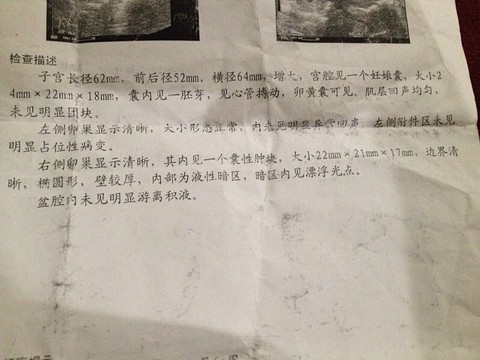 检查描述
子宫长径62mm，前后径52mm，横径64mm，增大，宫腔见一个妊娠囊，大小2
4mm×22mm×18mm，囊内见一胚芽，见心管搏动，卵黄囊可见，肌层回声均匀，
未见明显团块。
左侧卵巢显示清晰，大小形态正常，内未见明显异常回声。左侧附件区未见
明显占位性病变。
右侧卵巢显示清晰，其内见一个囊性肿块，大小22mm×21mm×17mm，边界清
晰，椭圆形，壁较厚，内部为液性暗区，暗区内见漂浮光点。
盆腔内未见明显游离积液。